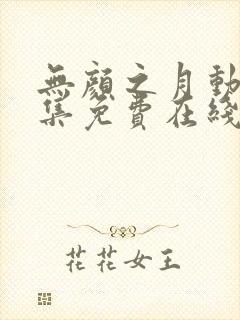 無顏之月動
集免費在綫
花花女王